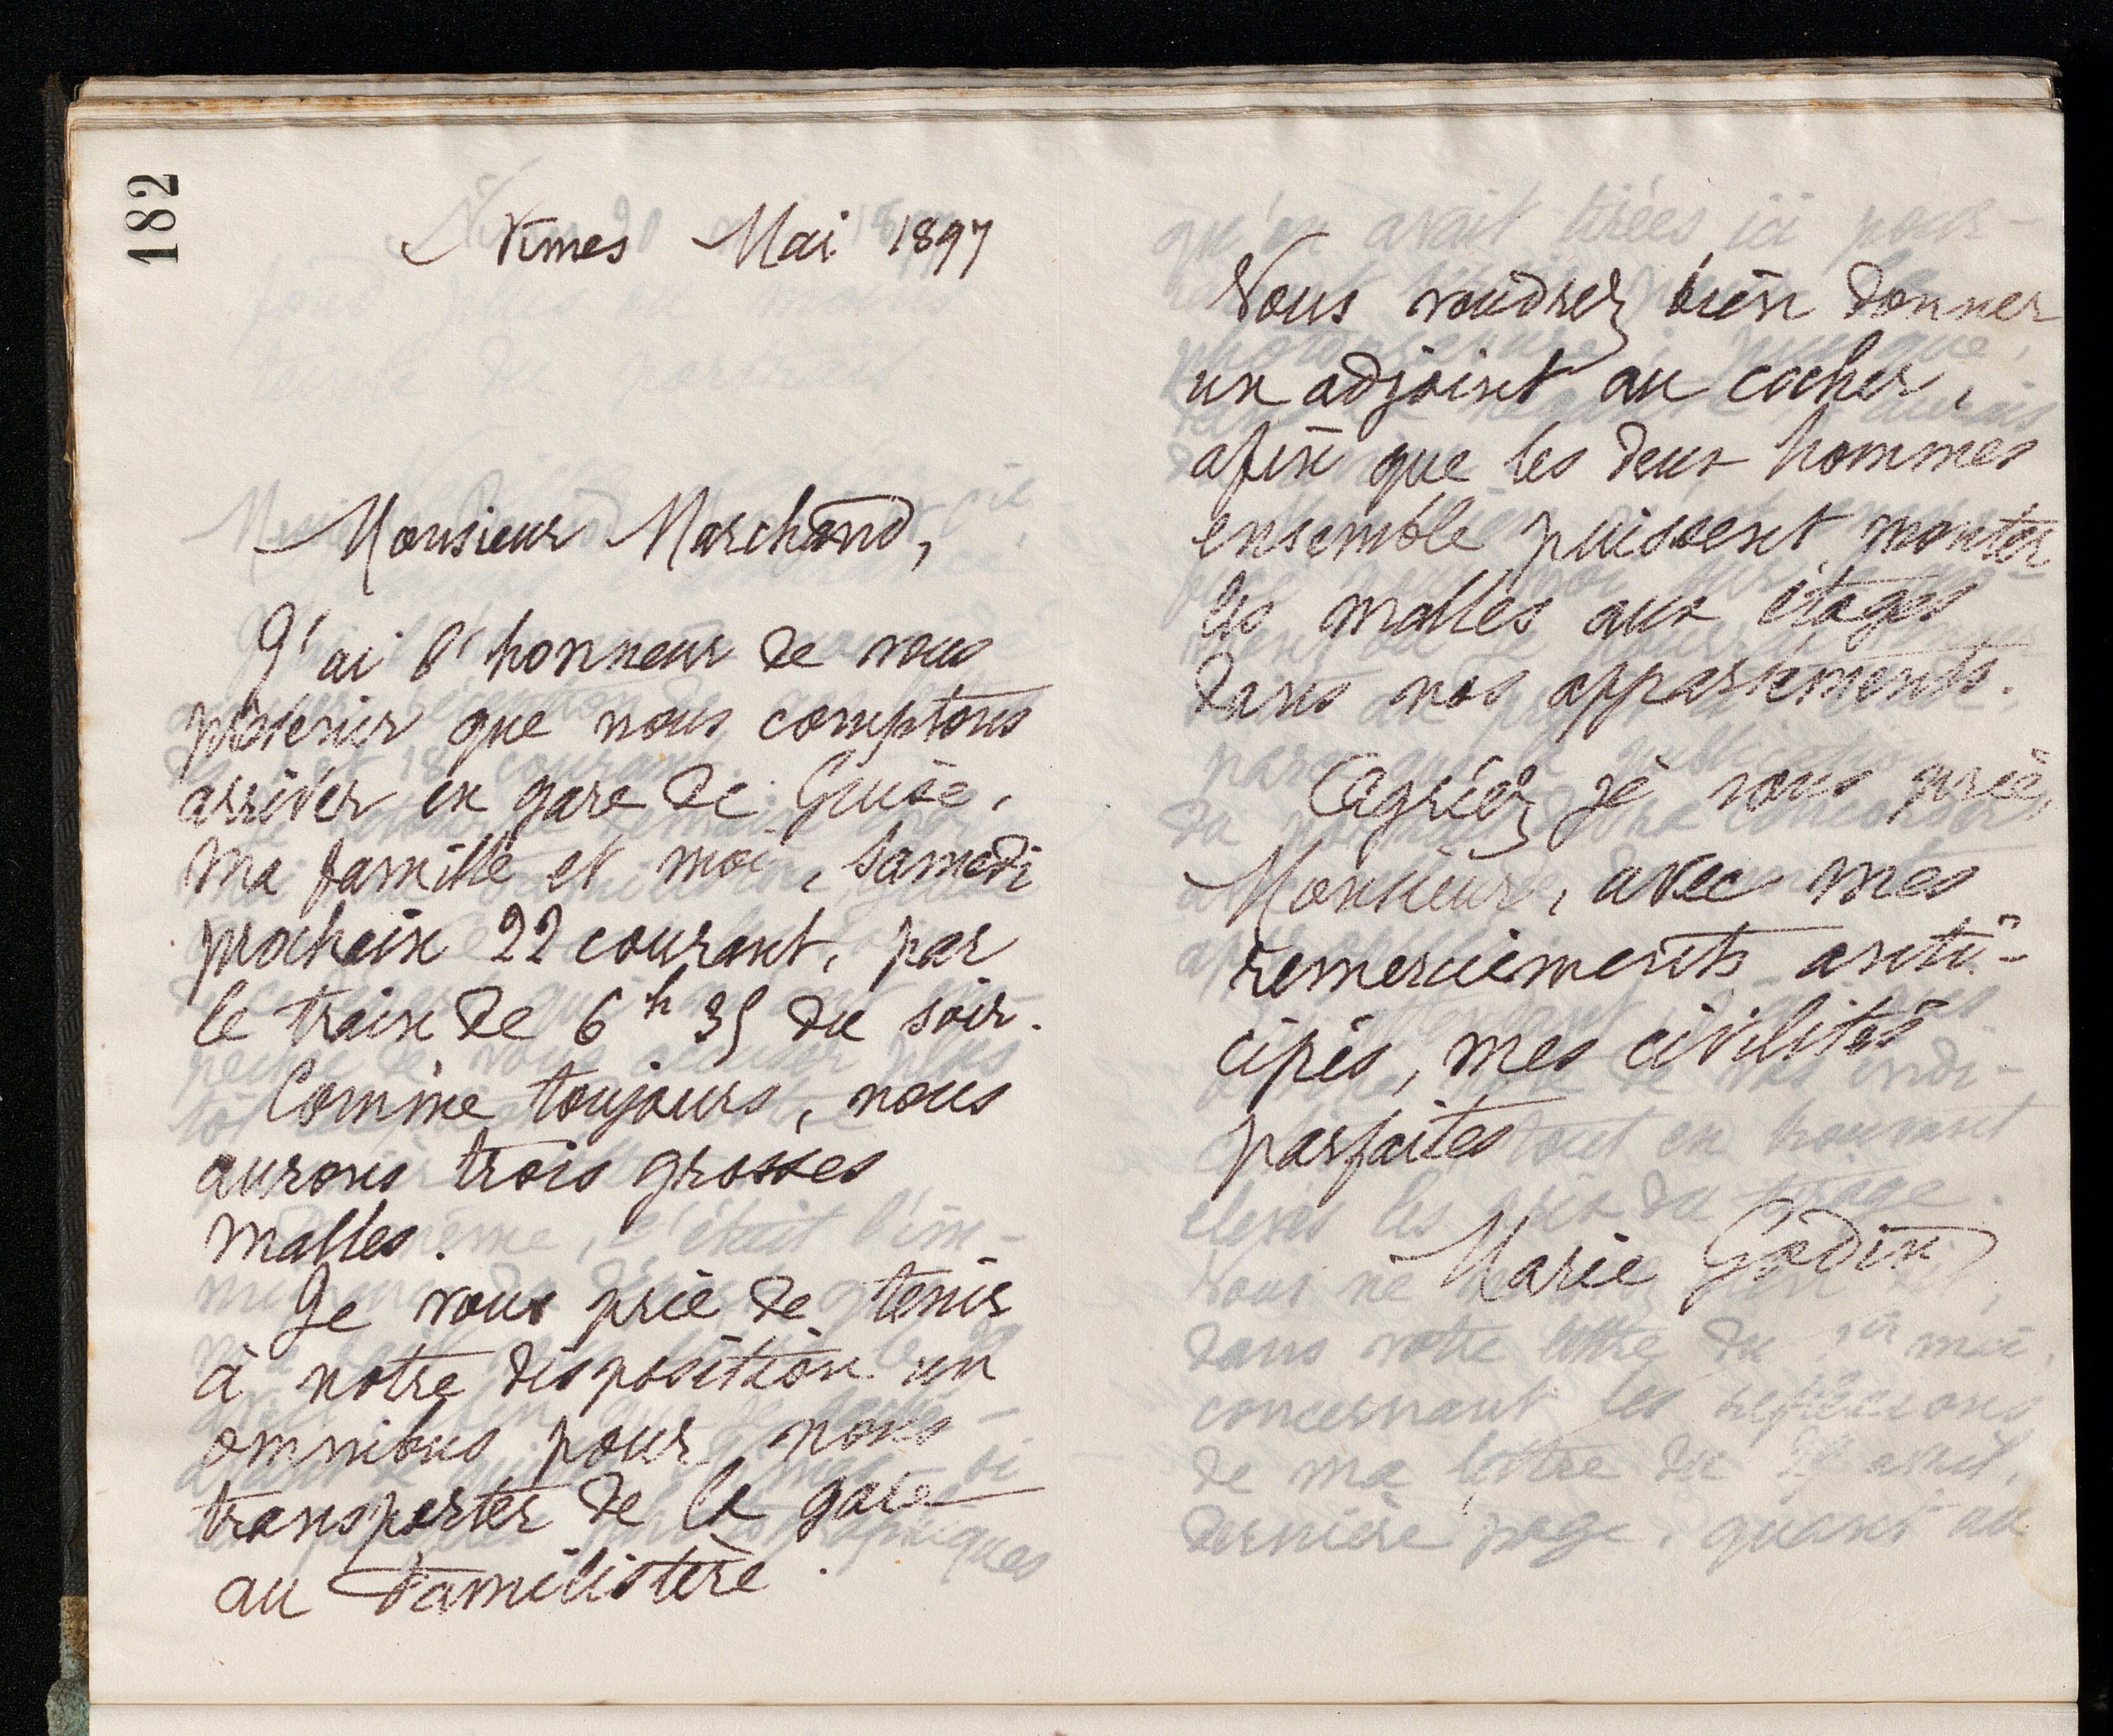 182
Nîmes Mai 1897
Monsieur Marchand,
J'ai l'honneur de vous
prévenir que nous comptons
arriver en gare de Guise,
ma famille et moi, samedi
prochain 22 courant, par
le train de 6h 35 du soir.
Comme toujours, nous
aurons trois grosses
malles.
Je vous prie de tenir
à notre disposition un
omnibus pour nous
transporter de la gare
au Familistère.
Vous voudrez bien donner
un adjoint au cocher,
afin que les deux hommes
ensemble puissent monter
les malles aux étages
dans nos appartements.
Agréez je vous prie,
Monsieur, avec mes
remerciements anti-
cipés, mes civilités
parfaites
Marie Godin